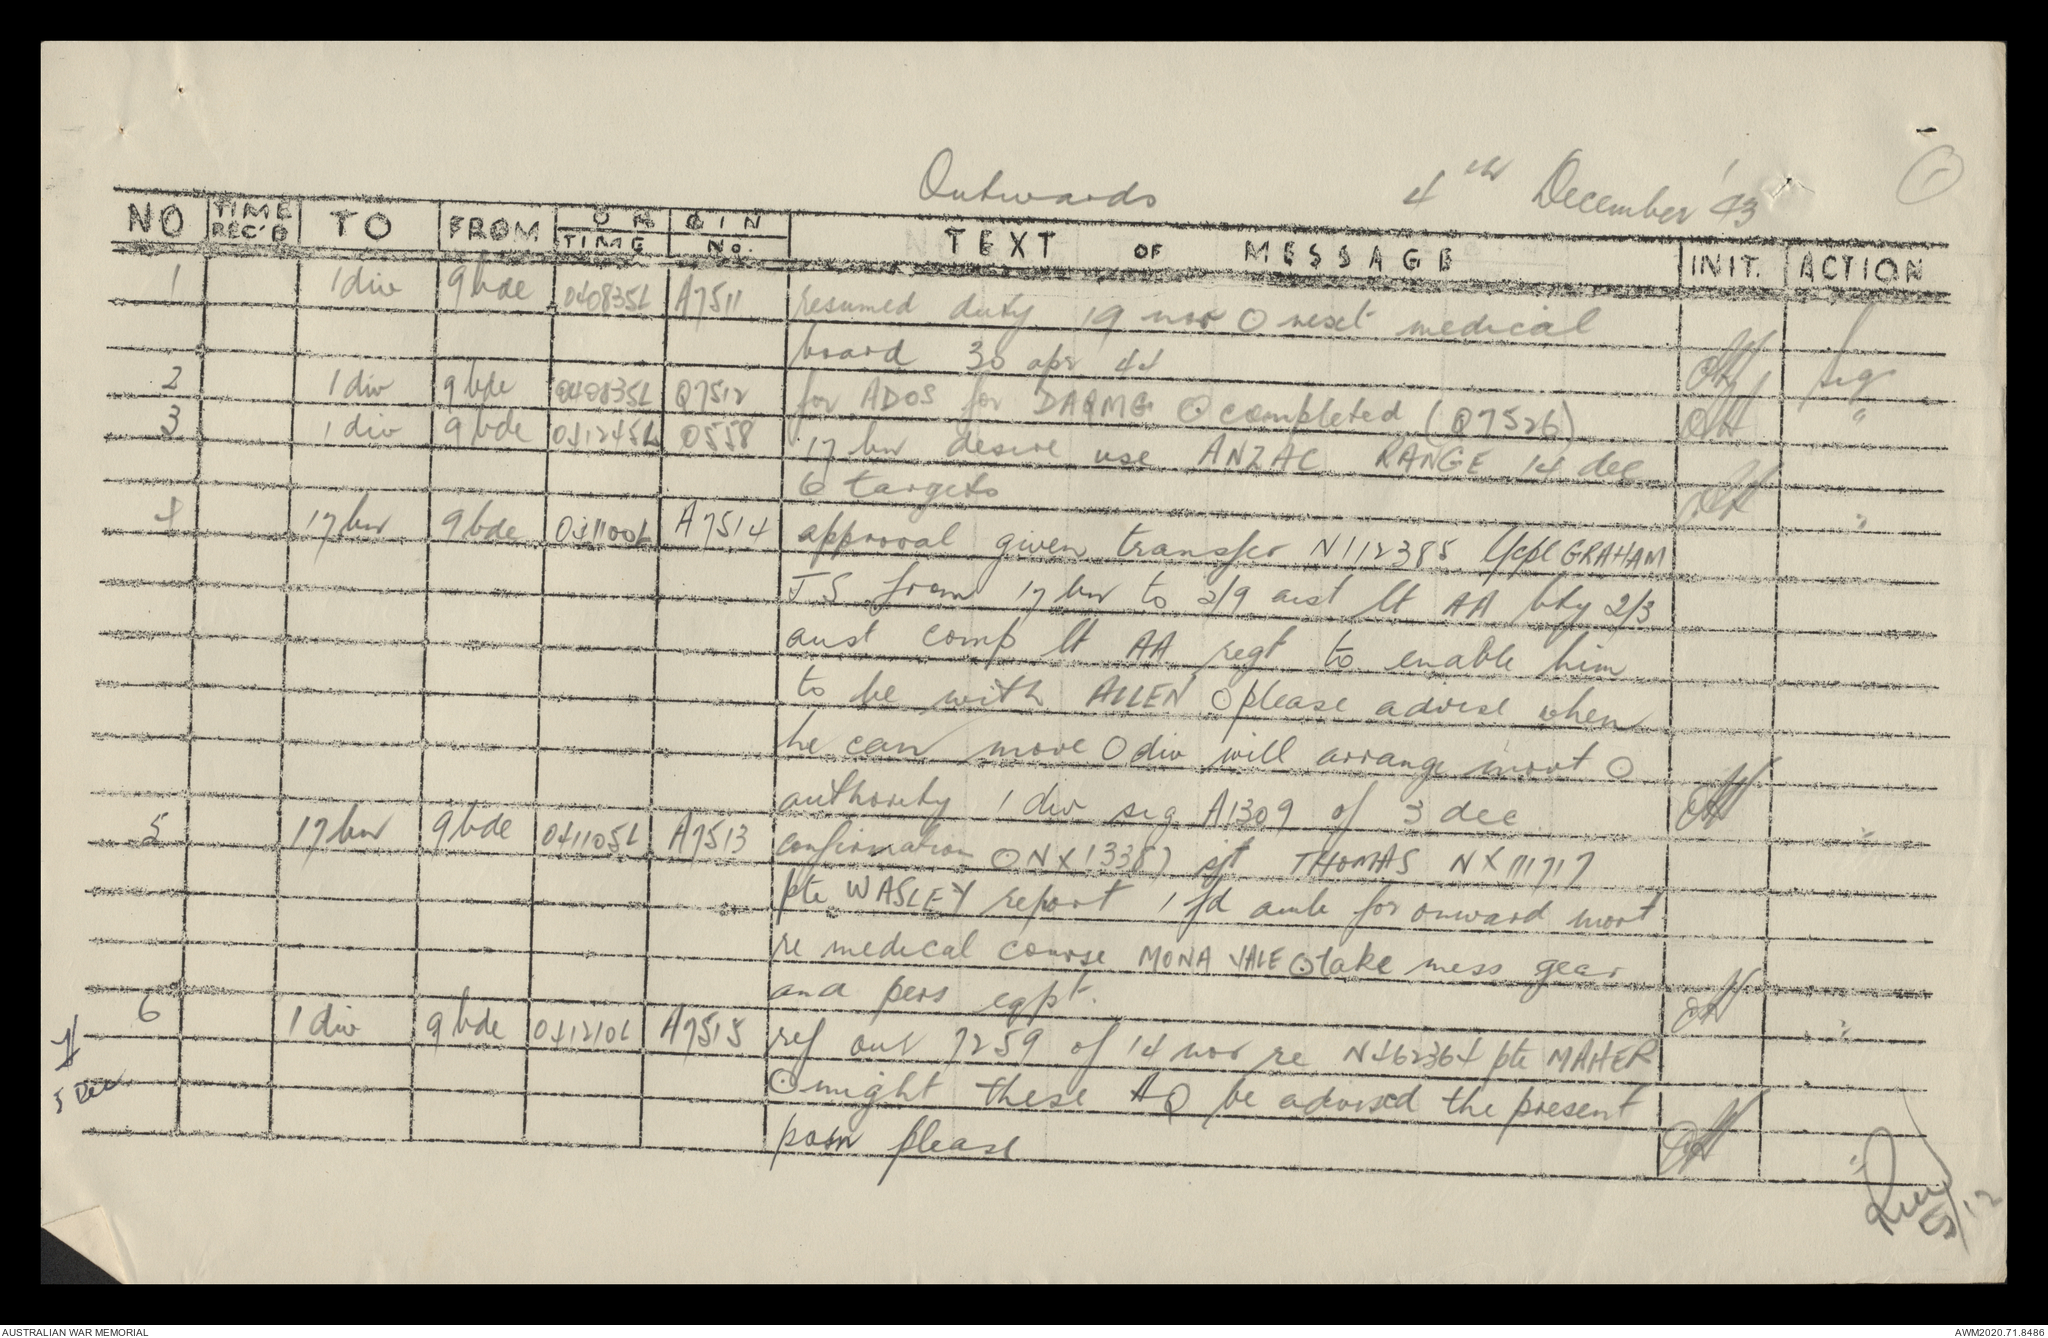 Outwards 4th December '43
1
NO TIME REC'D TO FROM ORIGIN TIME No. TEXT OF MESSAGE INIT. ACTION
1 1 div 9 bde 040835L A7511 resumed duty 19 nov O next medical
board 30 apr 44 sig
2 1 div 9 bde 040835L Q7512 for ADOS for DAQMG O completed (Q7526) "
3 1 div 9 bde 041245L O558 17 bn desire use ANZAC RANGE 14 dec
6 targets "
4 17 bn 9 bde 041100L A7514 approval given transfer N112385 L/cpl GRAHAM
J S from 17 bn to 2/9 aust lt AA bty 2/3
aust comp lt AA regt to enable him
to be with ALLEN O please advise when
he can move O div will arrange movt O
authority 1 div sig A1309 of 3 dec "
5 17 bn 9 bde 041105L A7513 confirmation O NX13387 sjt THOMAS NX111717
pte WASLEY report 1 fd amb for onward movt
re medical course MONA VALE O take mess gear
and pers eqpt. "
6 1 div 9 bde 041210L A7515 ref our 7259 of 14 nov re N462364 pte MAHER
O might these HQ be advised the present
posn please "
5 Dec
5/12
AUSTRALIAN WAR MEMORIAL AWM2020.71.8486